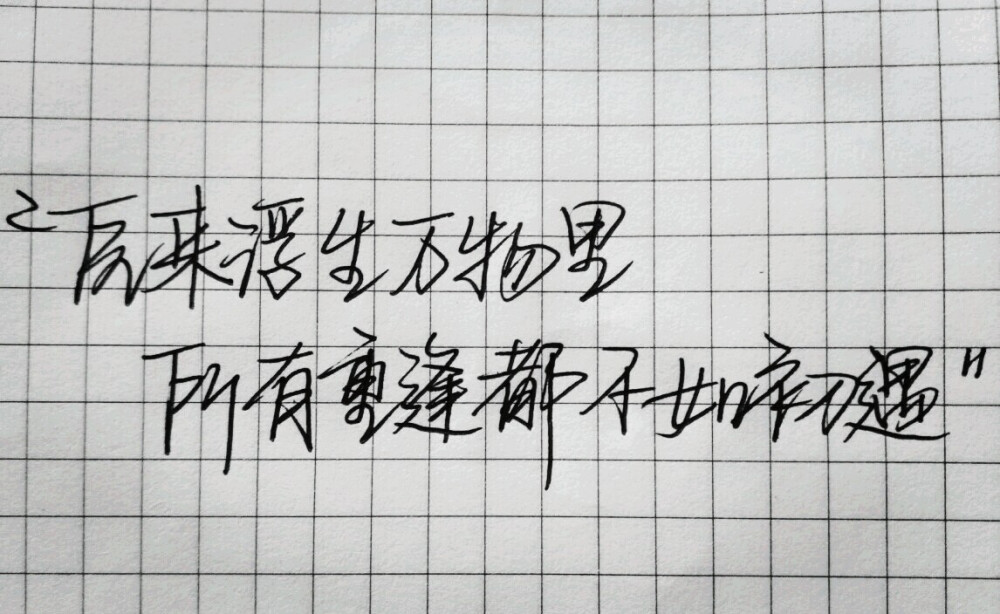 “后来浮生万物里
所有重逢都不如初遇”